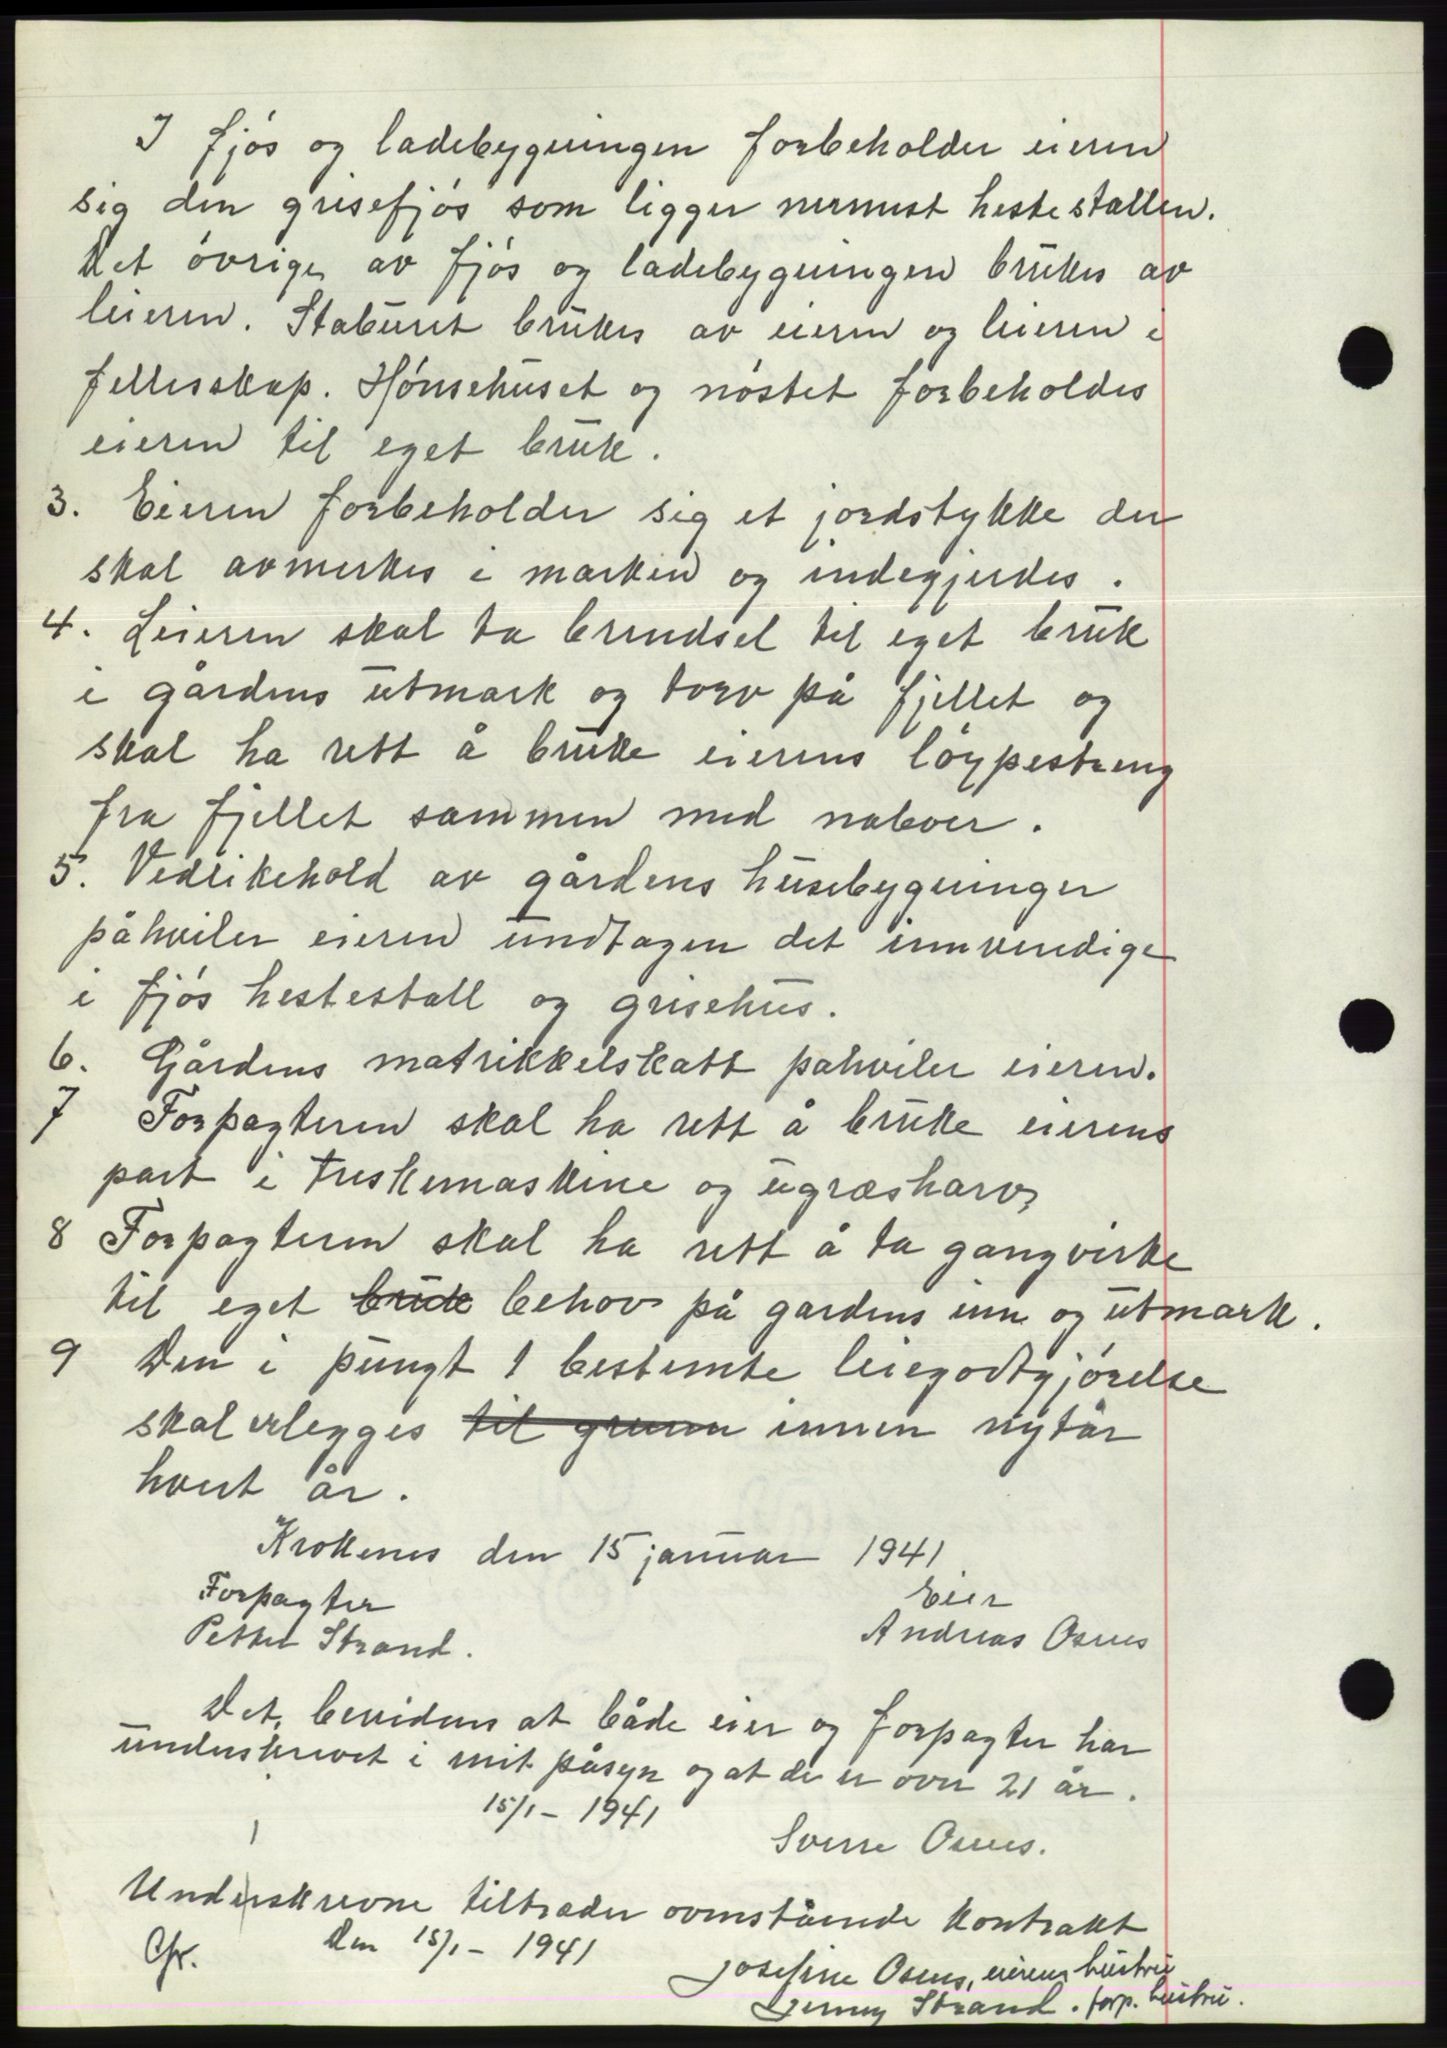 I fjós og ladebygningen forbeholder eieren
sig den grisefjós som ligger nermest hestestallen.
Det óvrige av fjós og ladebygningen brukes av
leieren. Staburet brukes av eieren og leieren i
fellesskap. Hónsehuset og nóstet forbeholdes
eieren til eget bruk.
3. Eieren forbeholder sig et jordstykke der
skal avmerkes i marken og indegjerdes.
4. Leieren skal ta brendsel til eget bruk
i gårdens utmark og torv på fjellet og
skal ha rett å bruke eierens lóypestreng
fra fjellet sammen med naboer.
5. Vedlikehold av gårdens husebygninger
påhviler eieren undtagen det innvendige
i fjós hestestall og grisehus.
6. Gårdens matrikkelskatt pahviler eieren.
7 Forpagteren skal ha rett å bruke eierens
part i treskemaskine og ugræsharv,
8 Forpagteren skal ha rett å ta gangvirke
til eget bruk behov på gardens inn og utmark.
9 Den i pungt 1 bestemte leiegodtgjórelse
skal erlegges til innen nytår
hvert år.
Krokenes den 15 januar 1941
Forpagter Eier
Petter Strand. Andreas Osnes
Det, bevidnes at både eier og forpagter har
underskrevet i mit påsyn og at de er over 21 år.
15/1 - 1941
Sverre Osnes.
Underskrevne tiltræder ovenstående kontrakt
Den 15/1 - 1941
Josefine Osnes, eierens hustru
Jenny Strand. forp. hustru.